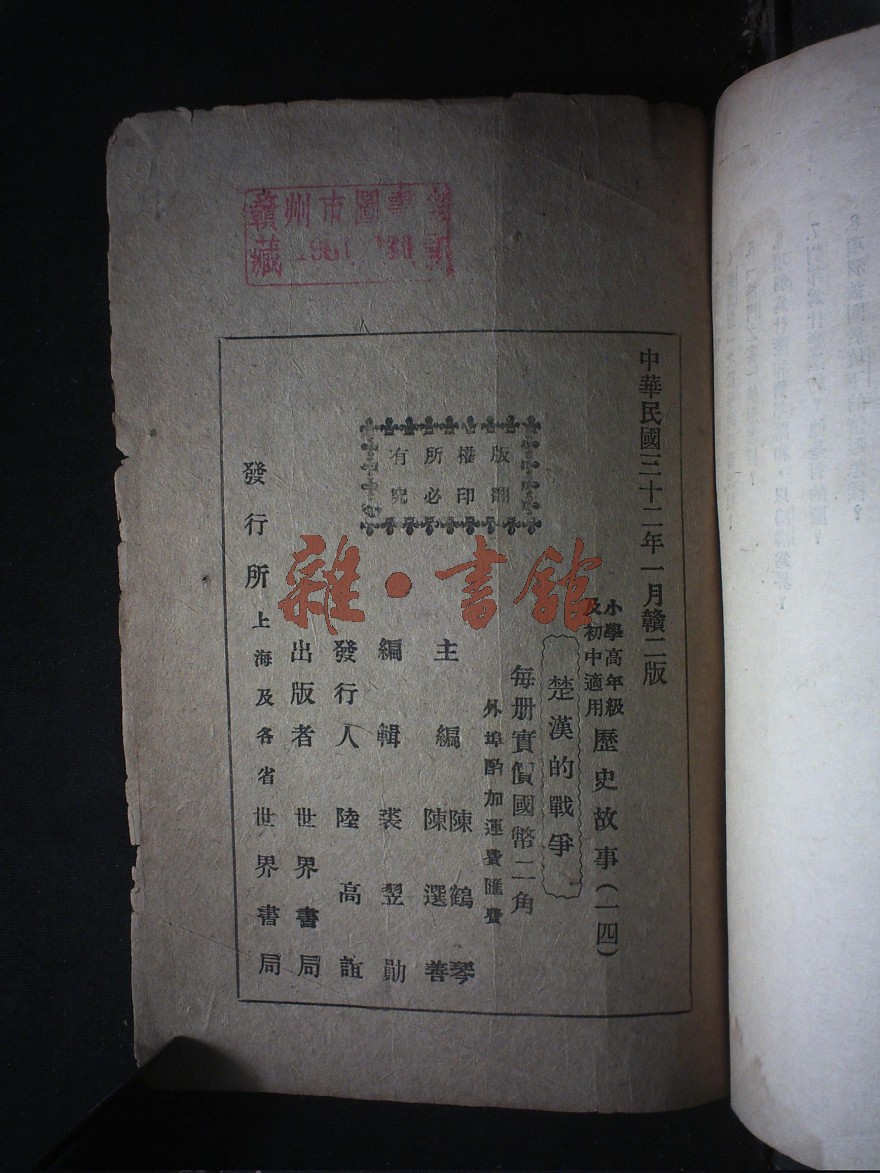 贛州市圖書
藏
中華民國三十二年一月贛二版
小學高年級
及初中適用
歷史故事(一四)
楚漢的戰爭
每册實價國幣二角
外埠酌加運費匯費
版權所有
翻印必究
主編 陳鶴琴
陳選善
編輯 裘翌勛
發行人 陸高誼
出版者 世界書局
發行所 上海及各省世界書局
雜·書館